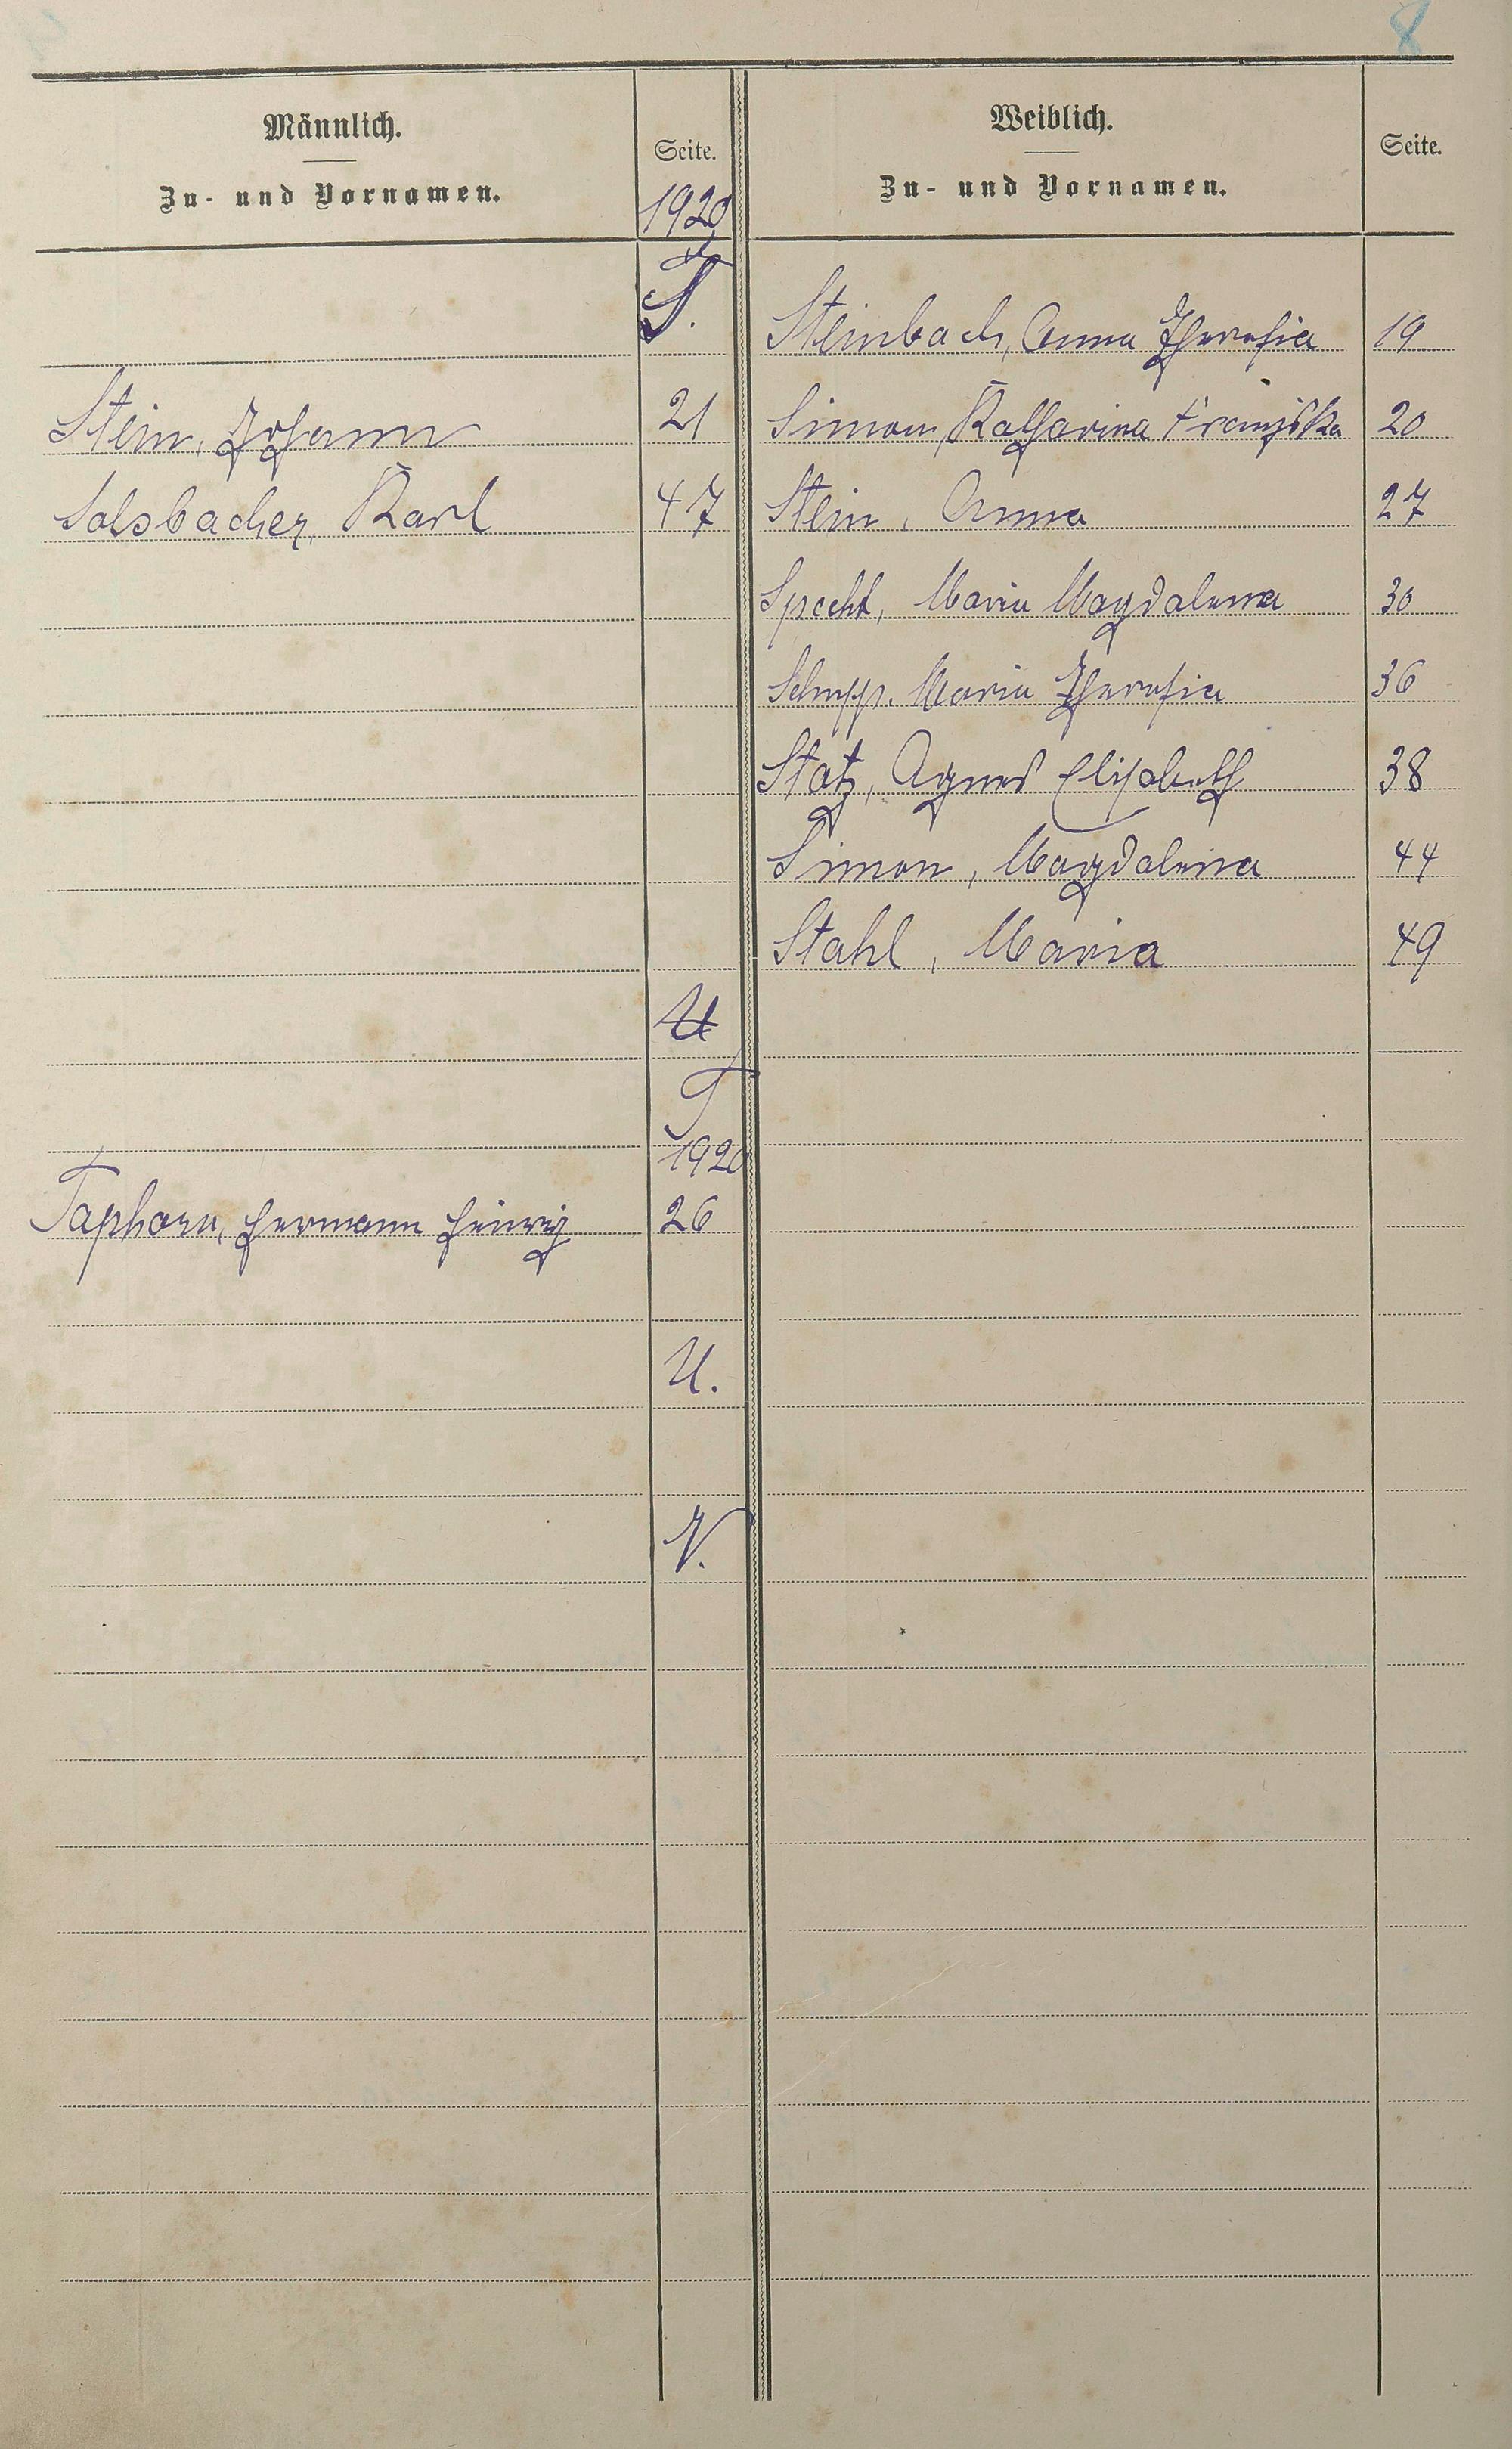 8
Männlich. Seite. Weiblich. Seite.
Zu- und Vornamen. Zu- und Vornamen.
1920
S. Steinbach, Anna Theresia 19
Stein, Johann 21 Simon, Katharina Franziska 20
Salsbacher, Karl 47 Stein, Anna 27
Specht, Maria Magdalena 30
Maria Theresia 36
Statz, Agnes Elisabeth 38
Simon, Magdalena 44
Stahl, Maria 49
U
T
1920
Taphorn, Hermann Heinrich 26
U.
V.